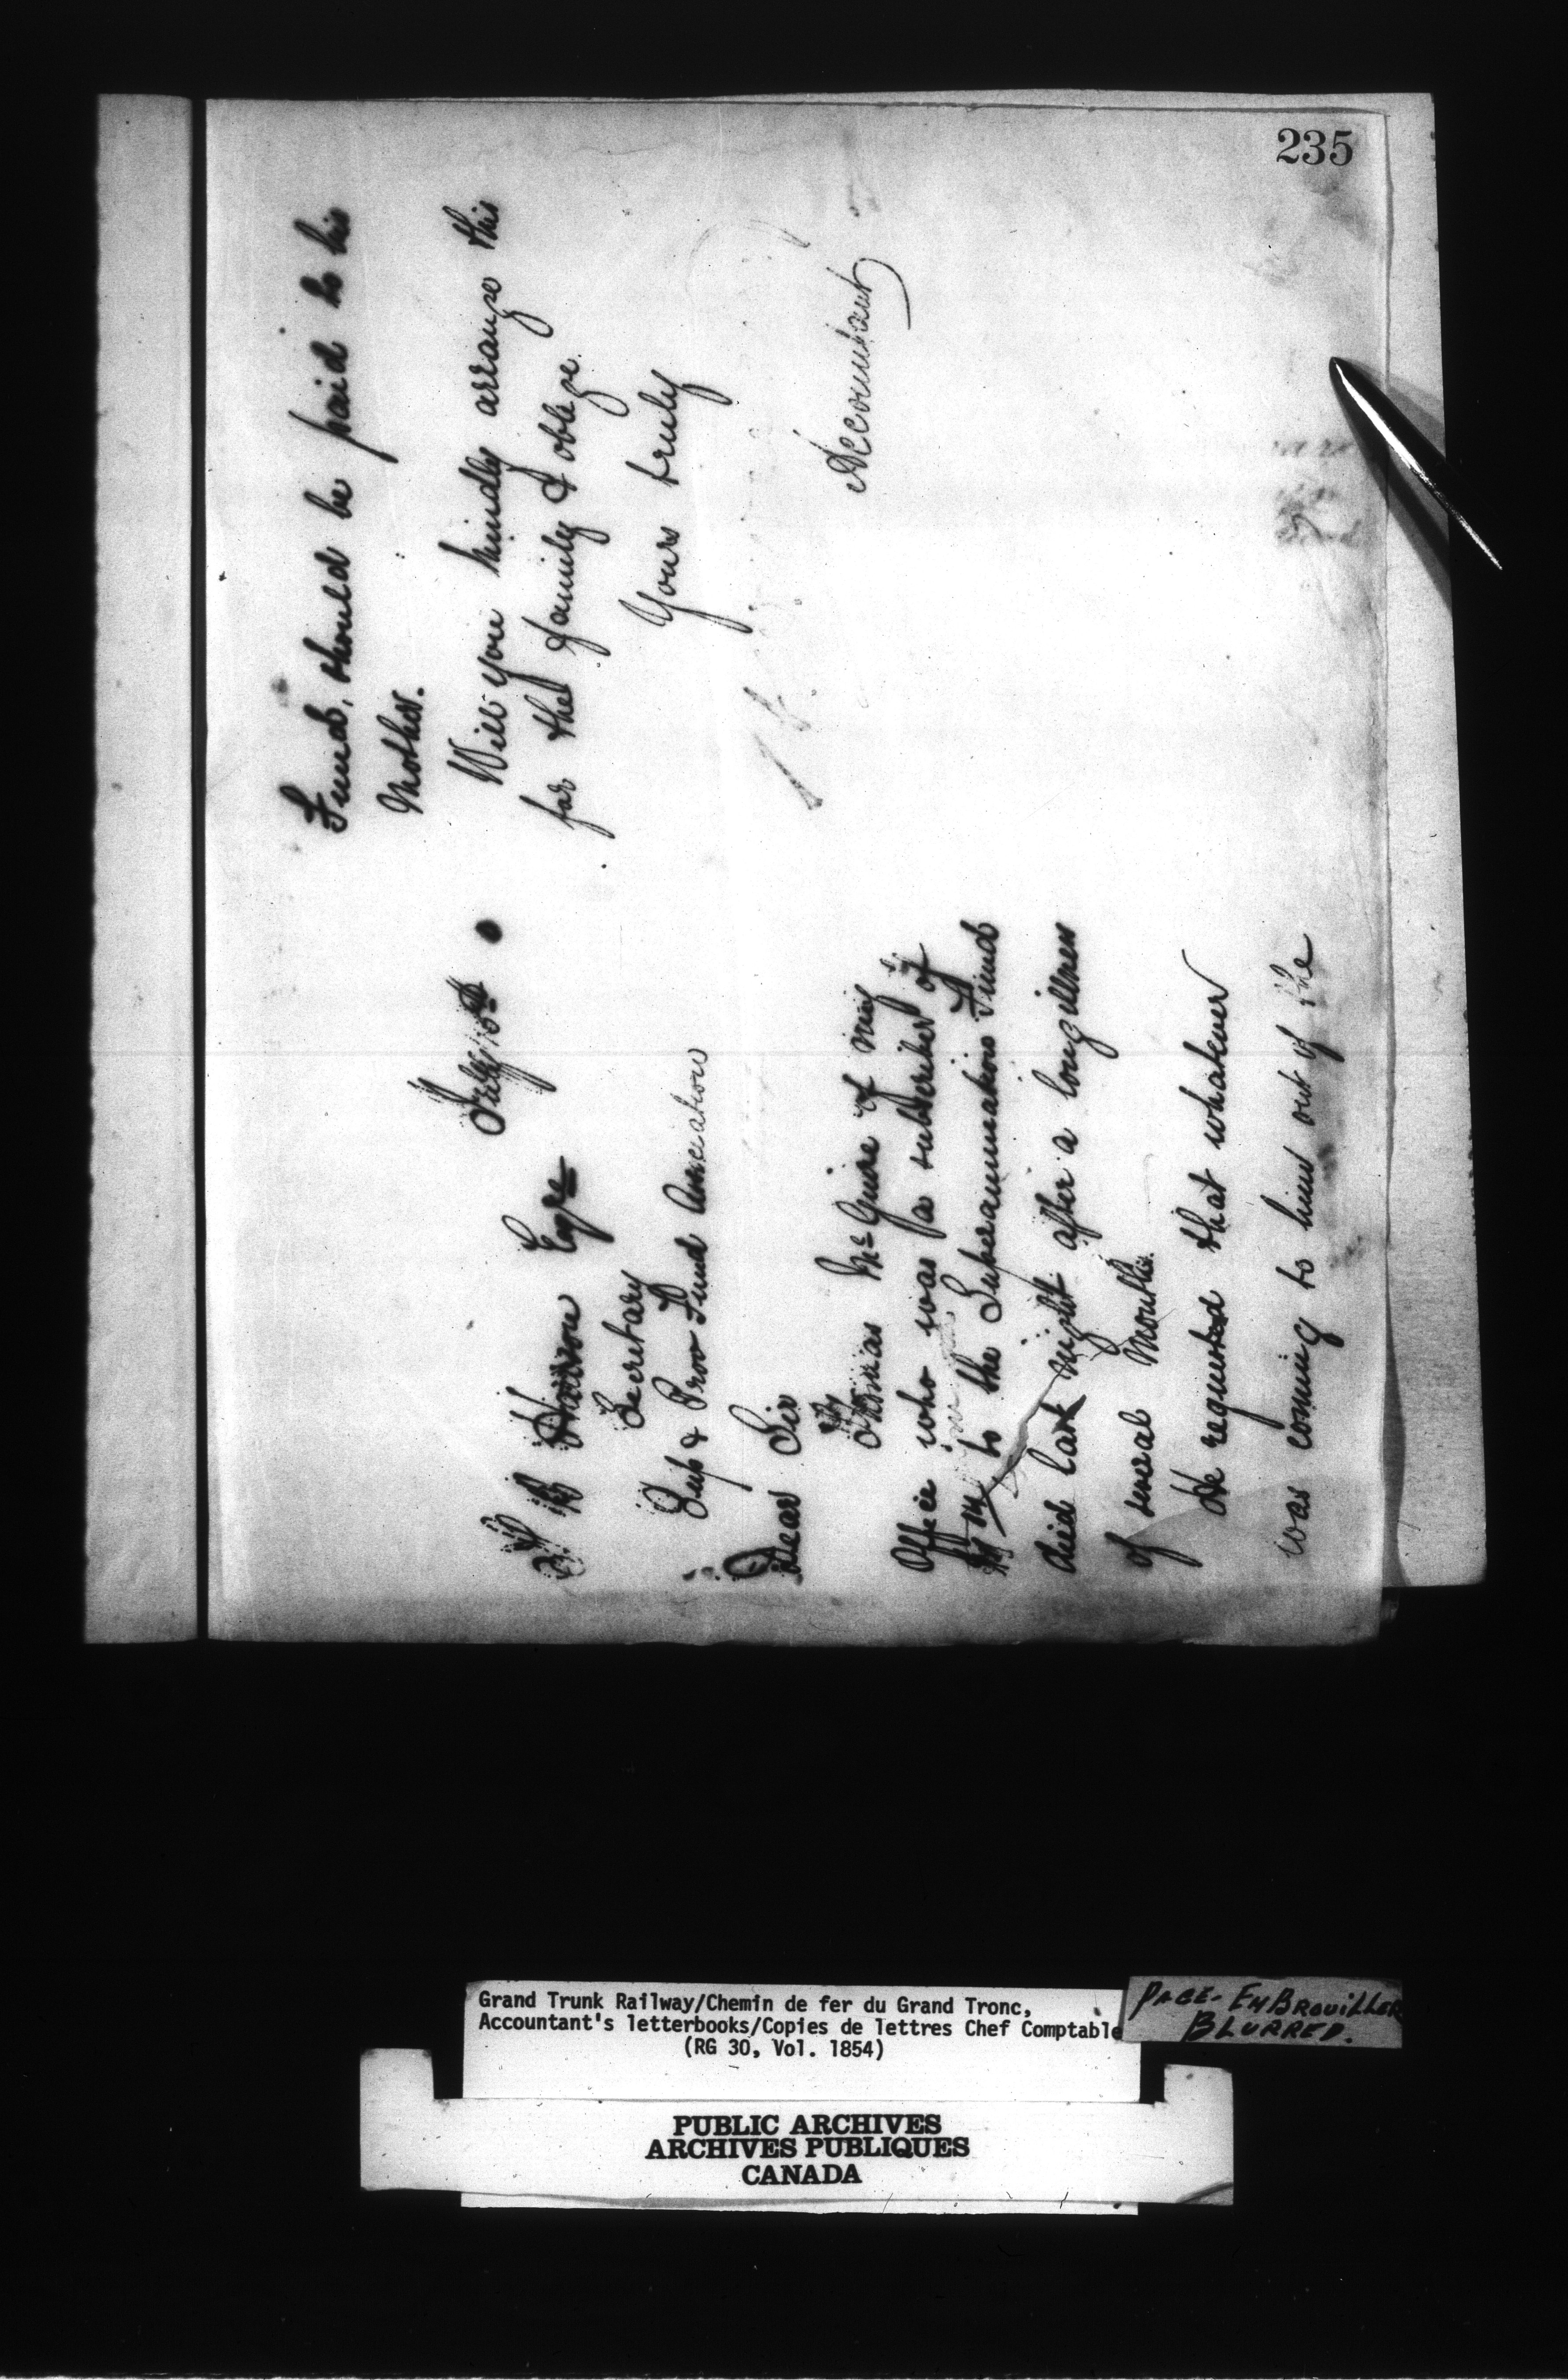 235
July 5th
Esqre
Secretary
Sup & Prov Fund Association
Dear Sir
Thomas McGuire of my
Office who was a subscriber of
to the Superannuation Fund
died last night after a long illness
of several months.
He requested that whatever
was coming to him out of the
Fund, should be paid to his
Mother.
Will you kindly arrange this
for the family & oblige
Yours truly
Accountant
Grand Trunk Railway/Chemin de fer du Grand Tronc,
Accountant's letterbooks/Copies de lettres Chef Comptable
(RG 30, Vol. 1854)
PAGE-EMBROUILLER
BLURRED.
PUBLIC ARCHIVES
ARCHIVES PUBLIQUES
CANADA